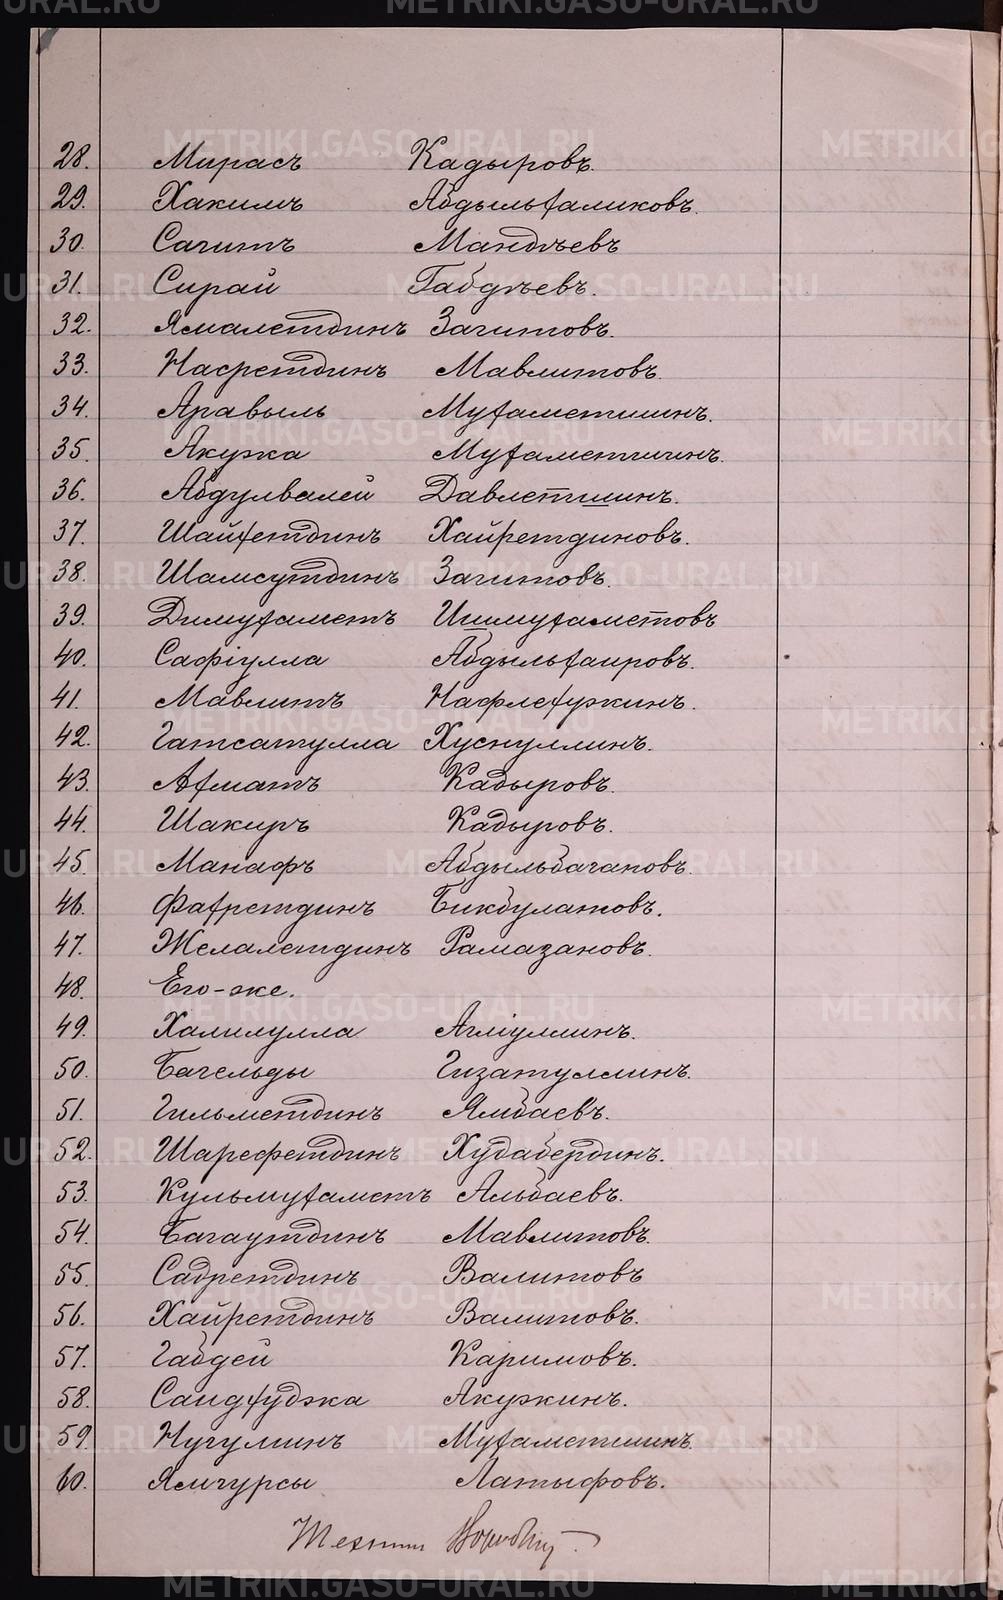 28. Мирасъ Кадыровъ.
29. Хакимъ Абдыльхаликовъ.
30. Сагитъ Мандѣевъ
31. Сирай Габдѣевъ.
32. Ямалетдинъ Загитовъ.
33. Насретдинъ Мавлитовъ.
34. Аравыль Мухаметшинъ.
35. Акужка Мухаметшинъ.
36. Абдулвалей Давлетшинъ.
37. Шайхетдинъ Хайретдиновъ.
38. Шамсутдинъ Загитовъ.
39. Димухаметъ Ишмухаметовъ
40. Сафіулла Абдыльхаировъ.
41. Мавлитъ Нафлехужинъ.
42. Гатсатулла Хуснуллинъ.
43. Ахматъ Кадыровъ.
44. Шакиръ Кадыровъ.
45. Манафъ Абдыльбагановъ.
46. Фахретдинъ Бикбулатовъ.
47. Желалетдинъ Рамазановъ.
48. Его-же.
49. Халилулла Агліуллинъ.
50. Багельды Гизатуллинъ.
51. Гильметдинъ Ямбаевъ.
52. Шарефетдинъ Худабердинъ.
53. Кульмухаметъ Альбаевъ.
54. Багаутдинъ Мавлитовъ.
55. Садретдинъ Валитовъ
56. Хайретдинъ Валитовъ.
57. Габдей Каримовъ.
58. Саидхуджа Акужинъ.
59. Нугуминъ Мухаметшинъ.
60. Ямгурсы Латыфовъ.
METRIKI.GASO-URAL.RU